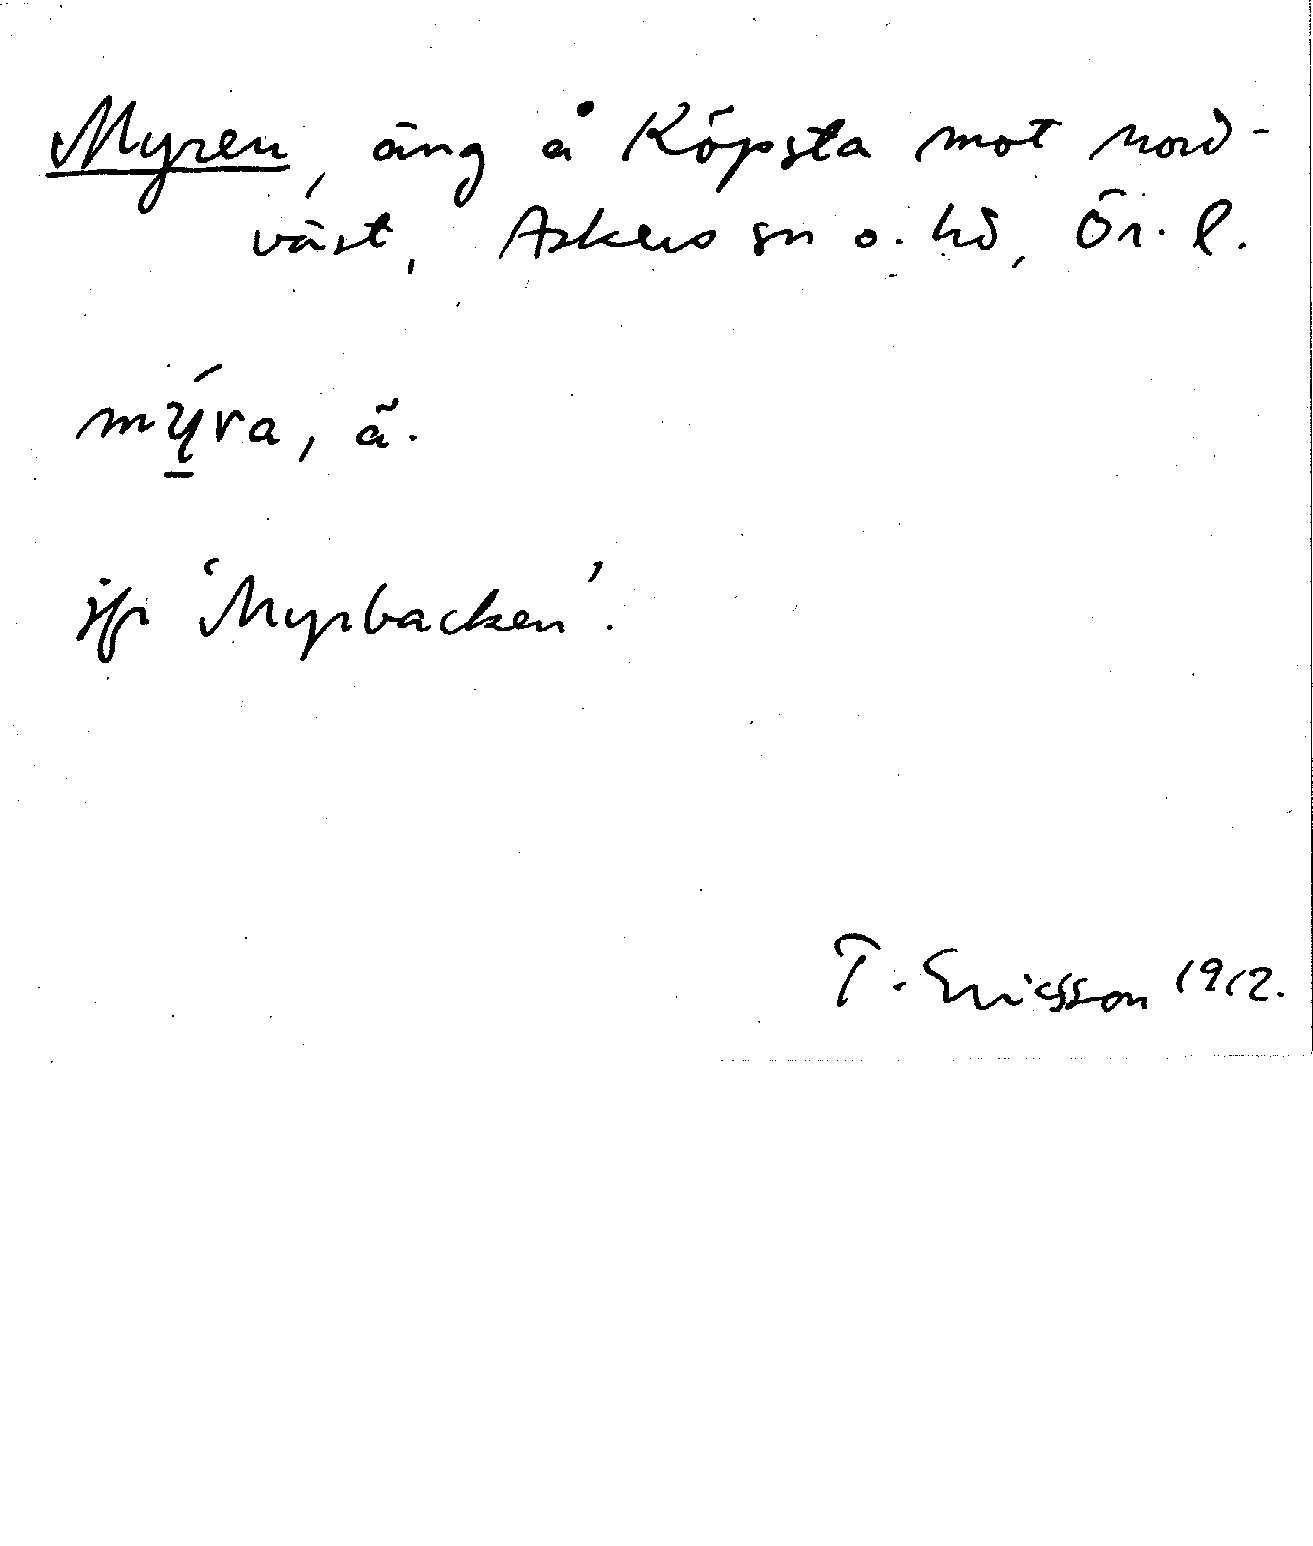 Myren, äng å Köpsta mot nord-
väst, Askers sn o. hd, Ör. l.
mýra, ä.
jfr 'Myrbacken'.
T. Ericsson 1912.